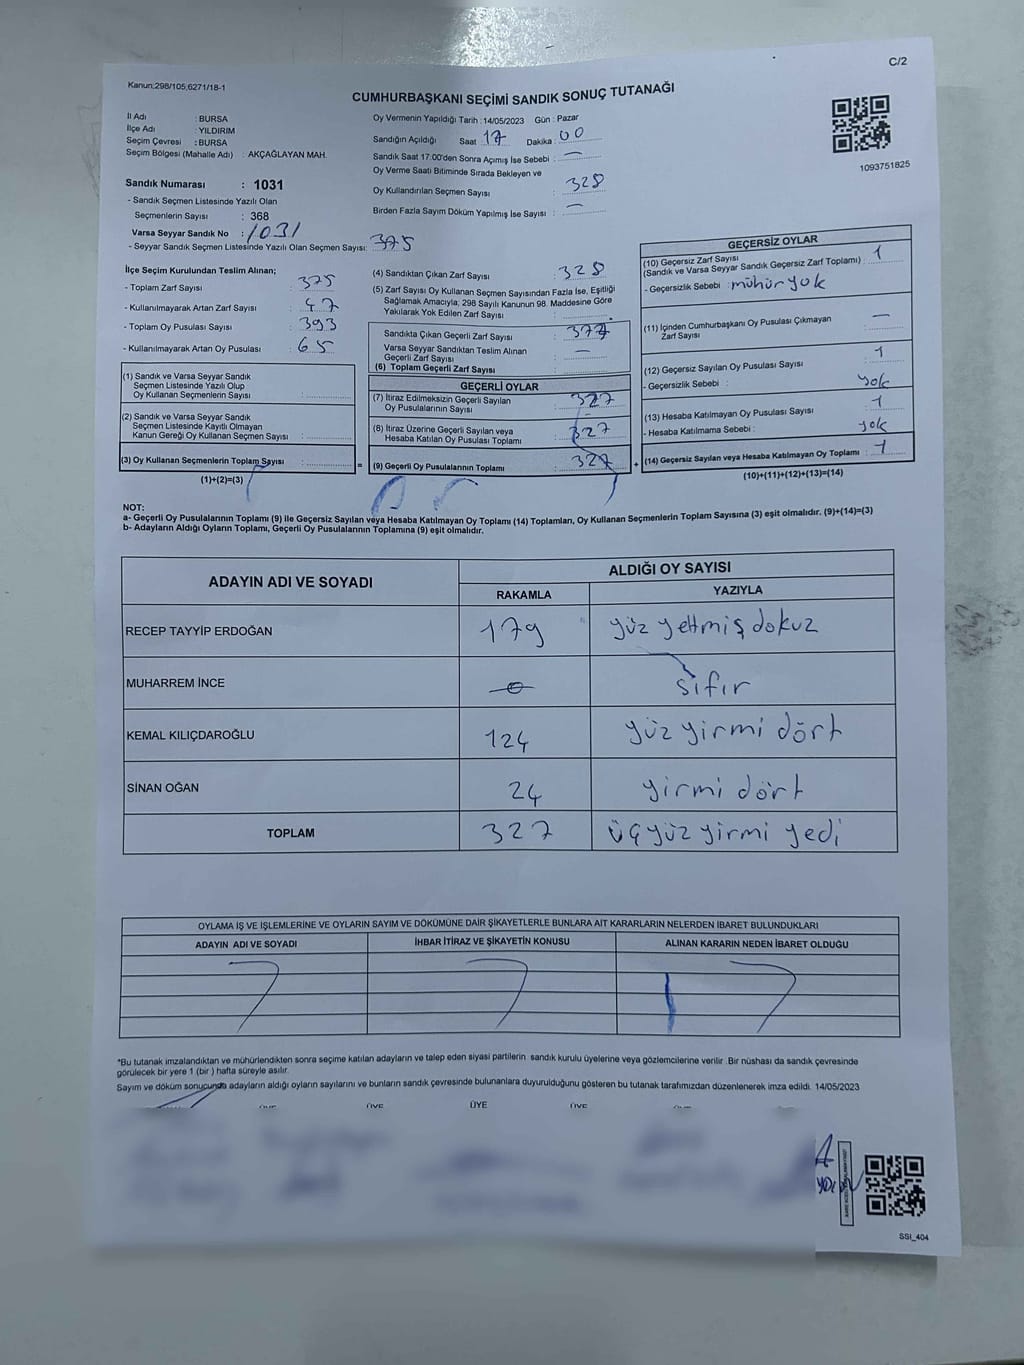 C/2
Kanun;298/105,6271/18-1
CUMHURBAŞKANI SEÇİMİ SANDIK SONUÇ TUTANAĞI
İl Adı : BURSA
İlçe Adı : YILDIRIM
Seçim Çevresi : BURSA
Seçim Bölgesi (Mahalle Adı) : AKÇAĞLAYAN MAH.
Oy Vermenin Yapıldığı Tarih : 14/05/2023 Gün : Pazar
Sandığın Açıldığı Saat 17 Dakika : 00
Sandık Saat 17:00'den Sonra Açımış İse Sebebi : —
Oy Verme Saati Bitiminde Sırada Bekleyen ve
Oy Kullandırılan Seçmen Sayısı : 328
Birden Fazla Sayım Döküm Yapılmış İse Sayısı : —
1093751825
Sandık Numarası : 1031
- Sandık Seçmen Listesinde Yazılı Olan
Seçmenlerin Sayısı : 368
Varsa Seyyar Sandık No : 1031
- Seyyar Sandık Seçmen Listesinde Yazılı Olan Seçmen Sayısı: 375
İlçe Seçim Kurulundan Teslim Alınan;
- Toplam Zarf Sayısı : 375
- Kullanılmayarak Artan Zarf Sayısı : 47
- Toplam Oy Pusulası Sayısı : 393
- Kullanılmayarak Artan Oy Pusulası : 65
(1) Sandık ve Varsa Seyyar Sandık
Seçmen Listesinde Yazılı Olup
Oy Kullanan Seçmenlerin Sayısı :
(2) Sandık ve Varsa Seyyar Sandık
Seçmen Listesinde Kayıtlı Olmayan
Kanun Gereği Oy Kullanan Seçmen Sayısı :
(3) Oy Kullanan Seçmenlerin Toplam Sayısı :
(1)+(2)=(3)
(4) Sandıktan Çıkan Zarf Sayısı : 328
(5) Zarf Sayısı Oy Kullanan Seçmen Sayısından Fazla İse, Eşitliği
Sağlamak Amacıyla; 298 Sayılı Kanunun 98. Maddesine Göre
Yakılarak Yok Edilen Zarf Sayısı :
Sandıkta Çıkan Geçerli Zarf Sayısı :
Varsa Seyyar Sandıktan Teslim Alınan
Geçerli Zarf Sayısı : —
(6) Toplam Geçerli Zarf Sayısı :
GEÇERLİ OYLAR
(7) İtiraz Edilmeksizin Geçerli Sayılan
Oy Pusulalarının Sayısı : 327
(8) İtiraz Üzerine Geçerli Sayılan veya
Hesaba Katılan Oy Pusulası Toplamı : 327
= (9) Geçerli Oy Pusulalarının Toplamı : 327 +
GEÇERSİZ OYLAR
(10) Geçersiz Zarf Sayısı
(Sandık ve Varsa Seyyar Sandık Geçersiz Zarf Toplamı) : 1
- Geçersizlik Sebebi : mühür yok
(11) İçinden Cumhurbaşkanı Oy Pusulası Çıkmayan
Zarf Sayısı : —
(12) Geçersiz Sayılan Oy Pusulası Sayısı : 1
- Geçersizlik Sebebi : yok
(13) Hesaba Katılmayan Oy Pusulası Sayısı : 1
- Hesaba Katılmama Sebebi : yok
(14) Geçersiz Sayılan veya Hesaba Katılmayan Oy Toplamı : 1
(10)+(11)+(12)+(13)=(14)
NOT:
a- Geçerli Oy Pusulalarının Toplamı (9) ile Geçersiz Sayılan veya Hesaba Katılmayan Oy Toplamı (14) Toplamları, Oy Kullanan Seçmenlerin Toplam Sayısına (3) eşit olmalıdır. (9)+(14)=(3)
b- Adayların Aldığı Oyların Toplamı, Geçerli Oy Pusulalarının Toplamına (9) eşit olmalıdır.
ADAYIN ADI VE SOYADI
ALDIĞI OY SAYISI
RAKAMLA YAZIYLA
RECEP TAYYİP ERDOĞAN 179 yüz yetmiş dokuz
MUHARREM İNCE 0 sıfır
KEMAL KILIÇDAROĞLU 124 yüz yirmi dört
SİNAN OĞAN 24 yirmi dört
TOPLAM 327 üçyüz yirmi yedi
OYLAMA İŞ VE İŞLEMLERİNE VE OYLARIN SAYIM VE DÖKÜMÜNE DAİR ŞİKAYETLERLE BUNLARA AİT KARARLARIN NELERDEN İBARET BULUNDUKLARI
ADAYIN ADI VE SOYADI İHBAR İTİRAZ VE ŞİKAYETİN KONUSU ALINAN KARARIN NEDEN İBARET OLDUĞU
*Bu tutanak imzalandıktan ve mühürlendikten sonra seçime katılan adayların ve talep eden siyasi partilerin sandık kurulu üyelerine veya gözlemcilerine verilir .Bir nüshası da sandık çevresinde
görülecek bir yere 1 (bir ) hafta süreyle asılır.
Sayım ve döküm sonucunda adayların aldığı oyların sayılarını ve bunların sandık çevresinde bulunanlara duyurulduğunu gösteren bu tutanak tarafımızdan düzenlenerek imza edildi. 14/05/2023
ÜYE ÜYE ÜYE ÜYE ÜYE
SSI_404